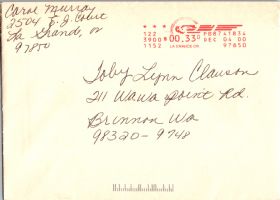 Carol Murray
2504 E. J Court
La Grande, or
97850
122 PB8741834
3900 00.33 DEC 04 00
1152 LA GRANDE OR 97850
Toby Lynn Clawson
211 Wawa Point Rd.
Brinnon Wa
98320-9748